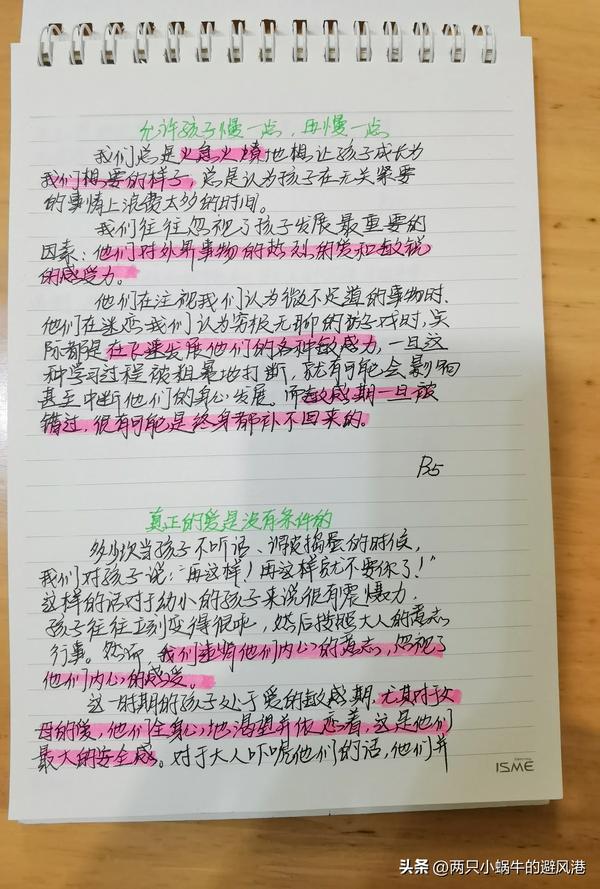 允许孩子慢一点，再慢一点
我们总是火急火燎地想让孩子成长为
我们想要的样子，总是认为孩子在无关紧要
的事情上浪费太多的时间。
我们往往忽视了孩子发展最重要的
因素：他们对外界事物的热烈的爱和敏锐
的感受力。
他们在注视我们认为微不足道的事物时、
他们在迷恋我们认为穷极无聊的游戏时，实
际都是在飞速发展他们的各种敏感力，一旦这
种学习过程被粗暴地打断，就有可能会影响
甚至中断他们的身心发展。而敏感期一旦被
错过，很有可能是终身都补不回来的。
P35
真正的爱是没有条件的
多少次当孩子不听话、调皮捣蛋的时候，
我们对孩子说：“再这样！再这样就不要你了！”
这样的话对于幼小的孩子来说很有震慑力，
孩子往往立刻变得很乖，然后按照大人的意志
行事。然而我们违背他们内心的意志，忽视了
他们内心的感受。
这一时期的孩子处于爱的敏感期，尤其对于父
母的爱，他们全身心地渴望并依恋着，这是他们
最大的安全感。对于大人吓唬他们的话，他们并
ISME
头条 @两只小蜗牛的避风港